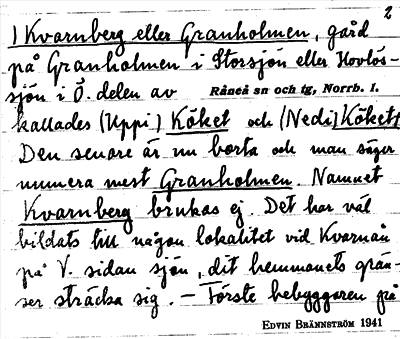 2
1 Kvarnberg eller Granholmen, gård
på Granholmen i Storsjön eller Hovlös-
sjön i Ö. delen av Råneå sn och tg, Norrb. l.
kallades (Uppi) Köket och (Nedi) Köket,
Den senare är nu borta och man säger
numera mest Granholmen. Namnet
Kvarnberg brukas ej. Det har väl
bildats till någon lokalitet vid Kvarnån
på V. sidan sjön, dit hemmanets grän-
ser sträcka sig. – Förste bebyggaren på
EDVIN BRÄNNSTRÖM 1941